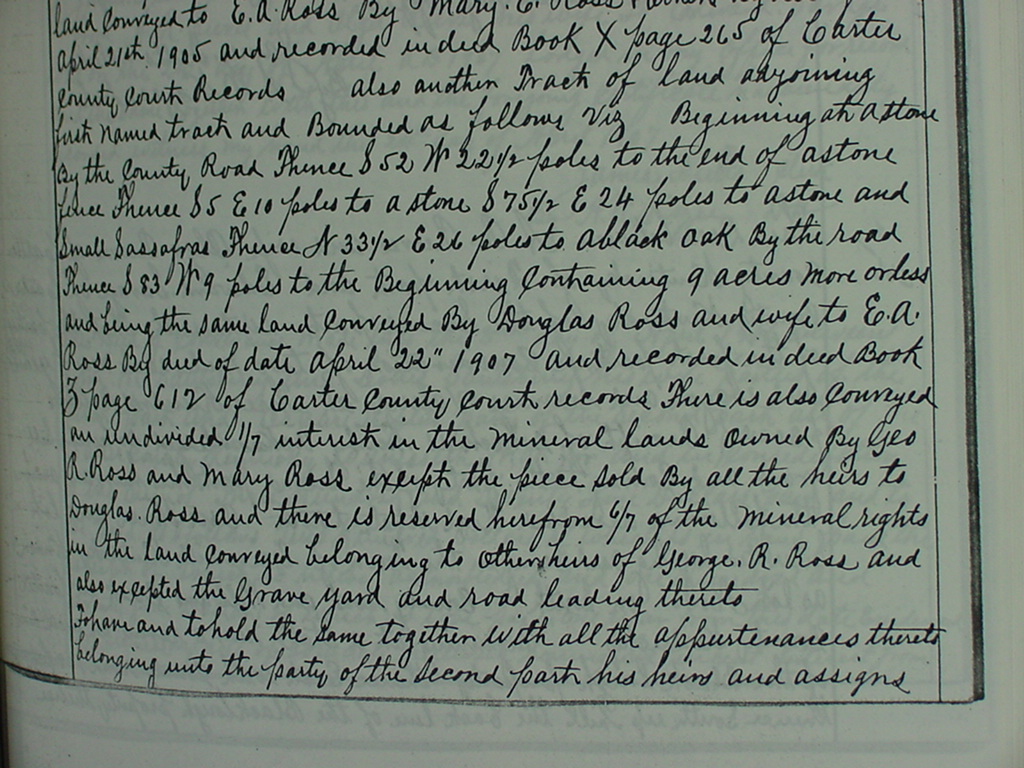 land conveyed to E. A. Ross By Mary. E. Ross
April 21st 1905 and recorded in deed Book X page 265 of Carter
County Court Records also another Tract of land adjoining
first named tract and Bounded as follows Viz Beginning at a stone
By the County Road Thence S 52 W 22 1/2 poles to the end of a stone
fence Thence S 5 E 10 poles to a stone S 75 1/2 E 24 poles to a stone and
Small Sassafras Thence N 33 1/2 E 26 poles to a black oak By the road
Thence S 83 W 9 poles to the Beginning Containing 9 acres more or less
and being the same land Conveyed By Douglas Ross and wife to E. A.
Ross By deed of date April 22" 1907 and recorded in deed Book
Z page 612 of Carter County Court records There is also Conveyed
an undivided 1/7 interest in the mineral lands owned By Geo
R. Ross and Mary Ross except the piece sold By all the heirs to
Douglas. Ross and there is reserved herefrom 6/7 of the mineral rights
in the land conveyed belonging to other heirs of George. R. Ross and
also excepted the Grave yard and road leading thereto
To have and to hold the same together with all the appurtenances thereto
belonging unto the party of the second part his heirs and assigns